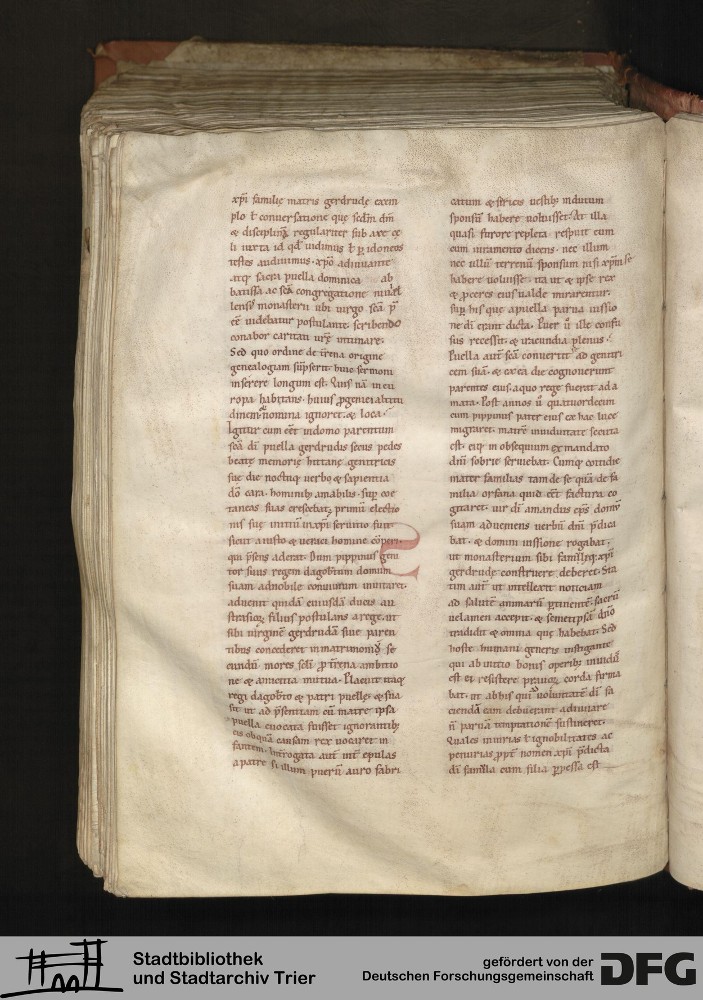 xp̄i familię matris gerdrudę exem
plo t̄ conversatione quę scdm̄ dm̄
& disciplinā regulariter sub axe cę
li iuxta id qd̄ uidimus t̄ p̄ idoneos
testes audiuimus. xp̄o adiuuante
atq; sacra puella dominica ab
batissa ac sc̄a congregatione
lensis monasterii ubi uirgo sc̄a
videbatur postulante scribendo
conabor caritati urę intimare.
Sed quo ordine de tr̄ena origine
genealogiam sūpserit huic sermoni
inserere longum est. Quis nā in eu
ropa habitans. huius progeniei altitu
dinem nomina ignoret. & loca.
Igitur cum eēt in domo parentum
sc̄a dī puella gerdrudis secus pedes
beatę memorię genitricis
suę die noctuq; verbo & sapientia
dō cara. hominib; amabilis. sup coę
taneas suas crescebat. primū electio
nis suę initiū in xp̄i servitio fuit
sicut a iusto & veraci homine cōperi.
qui p̄sens aderat. Dum pippinus geni
tor suus regem dagobtum domum
suam ad nobile convivium invitaret.
advenit quidā eiusdā ducis au
strasior; filius postulans a rege. ut
sibi virginē gerdrudā sive paren
tibus concederet in matrimoniū se
cundū mores sc̄li p̄ tr̄ena ambitio
ne & amicitia mutua. Placuit itaq;
regi dagobto & patri puellę. & sua
sit ut ad p̄sentiam eū matre ipsa
puella evocata fuisset ignorantib;
eis ob quā causam rex vocaret in
fantem. Introgata aut̄ int̄ epulas
a patre si illum puerū auro fabri
catum & sericis uestib; indutum
sponsū habere voluisset. At illa
quasi furore repleta. respuit eum
cum iuramento dicens. nec illum
nec ullū terrenū sponsum nisi xp̄m se
habere voluisse. ita ut & ipse rex
& proceres eius valde mirarentur.
sup his quę a puella parva iussio
ne dī erant dicta. Puer ū ille confu
sus recessit. & iracundia plenus.
Puella aut̄ sc̄a convertit ad genitri
cem suā. & ex ea die cognoverunt
parentes eius. a quo rege fuerat ada
mata. Post annos ū quatuordecim
cum pippinus pater eius ex hac luce
migraret. matrē in viduitate secuta
est. eiq; in obsequium ex mandato
dnī sobrie serviebat. Cumq; cottidie
mater familias tam de se quā de fa
milia orfana quid eēt factura co
gitaret. vir dī amandus ep̄s domū
suam adveniens verbū dnī p̄dica
bat. & domini iussione rogabat.
ut monasterium sibi familięq; xp̄i
gerdrudę construere deberet. Sta
tim aut̄ ut intellexit noticiam
ad salutē animarū ptinentē. sacrū
velamen accepit. & semetipsā dnō
tradidit & omnia quę habebat. Sed
hoste humani generis instigante
qui ab initio bonis operib; invidū
est ei resistere pravor; corda firma
bat. ut ab his qui voluntatē dī fa
ciendā eam debuerant adiuvare
n̄ parvā temptationē sustineret.
Quales iniurias t̄ ignobilitates ac
penurias propt̄ nomen xp̄i p̄dicta
dī famula cum filia ppessa est
Stadtbibliothek
und Stadtarchiv Trier
gefördert von der
Deutschen Forschungsgemeinschaft
DFG